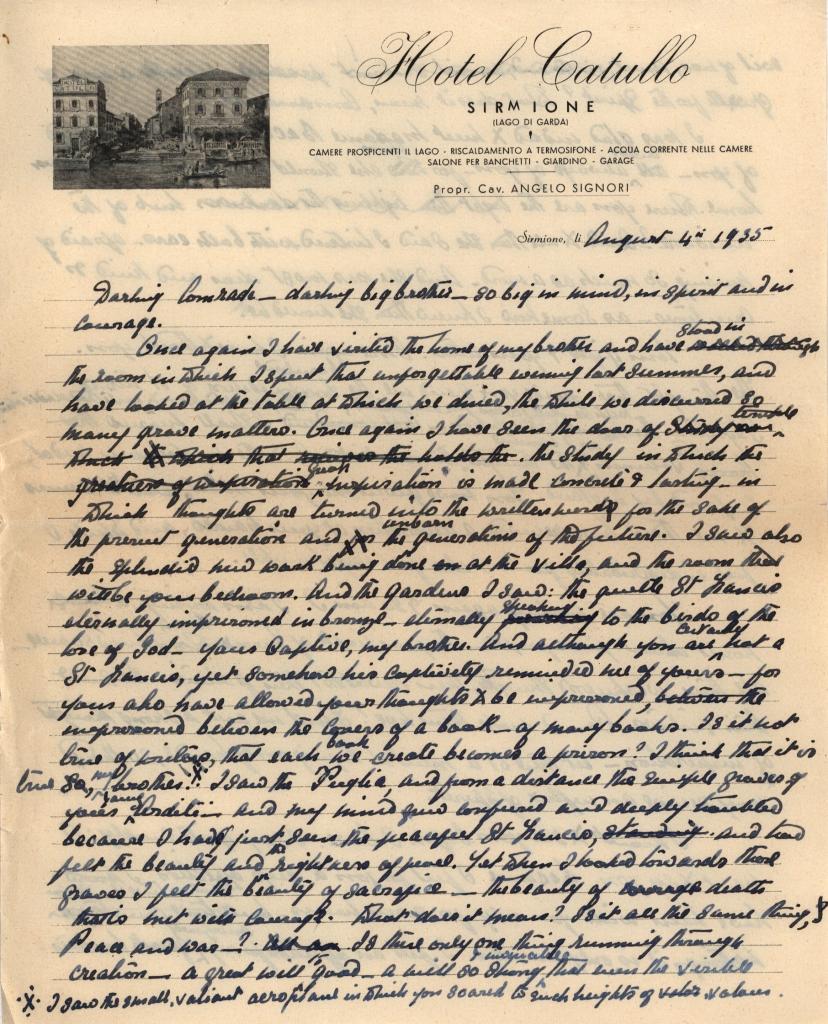 Hotel Catullo
SIRMIONE
(LAGO DI GARDA)
CAMERE PROSPICENTI IL LAGO - RISCALDAMENTO A TERMOSIFONE - ACQUA CORRENTE NELLE CAMERE
SALONE PER BANCHETTI - GIARDINO - GARAGE
Propr. Cav. ANGELO SIGNORI
Sirmione, li August 4th 1935
Darling Comrade — darling big brother — so big in mind, in spirit and in
courage.
Once again I have visited the home of my brother and have stood in
the room in which I spent that unforgettable evening last summer, and
have looked at the table at which we dined, the while we discussed so
many grave matters. Once again I have seen the door of temple
which that the holds the. the study in which the
greatness of inspiration great inspiration is made concrete & lasting — in
which thoughts are turned into the written words for the sake of
the present generation and for the unborn generations of the future. I saw also
the splendid new work being done at the villa, and the room that
will be your bedroom. And the gardens I saw: the gentle St Francis
eternally imprisoned in bronze — eternally speaking to the birds of the
love of God — your captive, my brother. And although you are certainly not a
St Francis, yet somehow his captivity reminded me of yours — for
you also have allowed your thoughts to be imprisoned, between the
imprisoned between the covers of a book — of many books. Is it not
true of writers, that each book we create becomes a prison? I think that it is
true so, my brother. X I saw the Puglia, and from a distance the simple graves of
your Arditi — and my mind grew confused and deeply troubled
because I had just seen the peaceful St Francis, standing. and had
felt the beauty and the rightness of peace. Yet when I looked towards those
graves I felt the beauty of sacrifice — the beauty of courage death
that is met with courage. What does it mean? Is it all the same thing,
Peace and war —? Is there only one thing running through
creation — a great will to good — a will so strong that even the visible
X. I saw the small, valiant aeroplane in which you soared to such heights of valour.